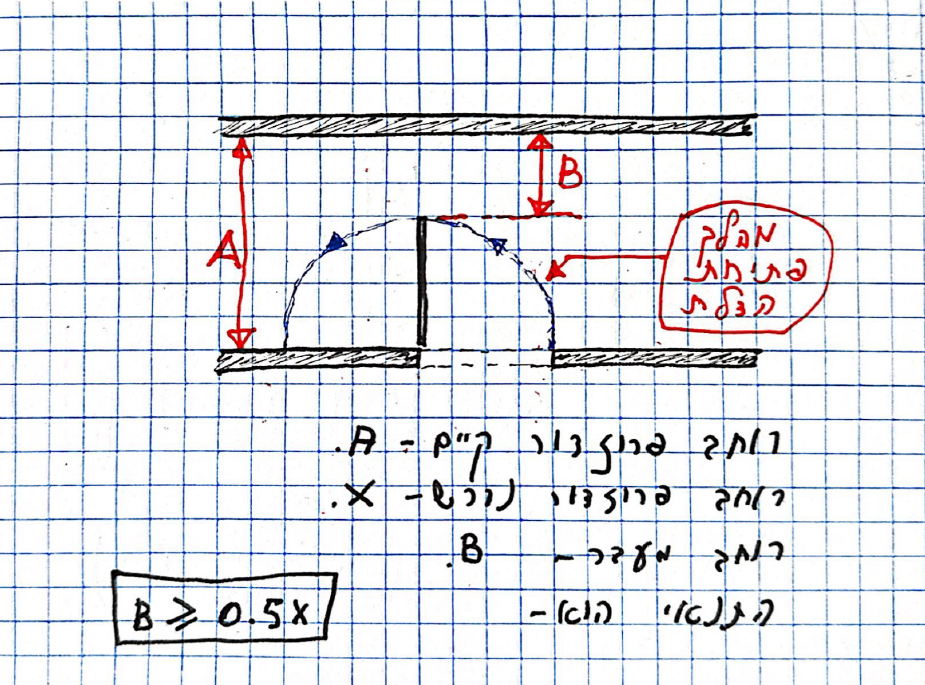 A
B
מהלך
פתיחת
הדלת
רוחב פרוזדור קיים - A.
רוחב פרוזדור נדרש - X.
רוחב מעבר - B.
התנאי הוא -
B ≥ 0.5X